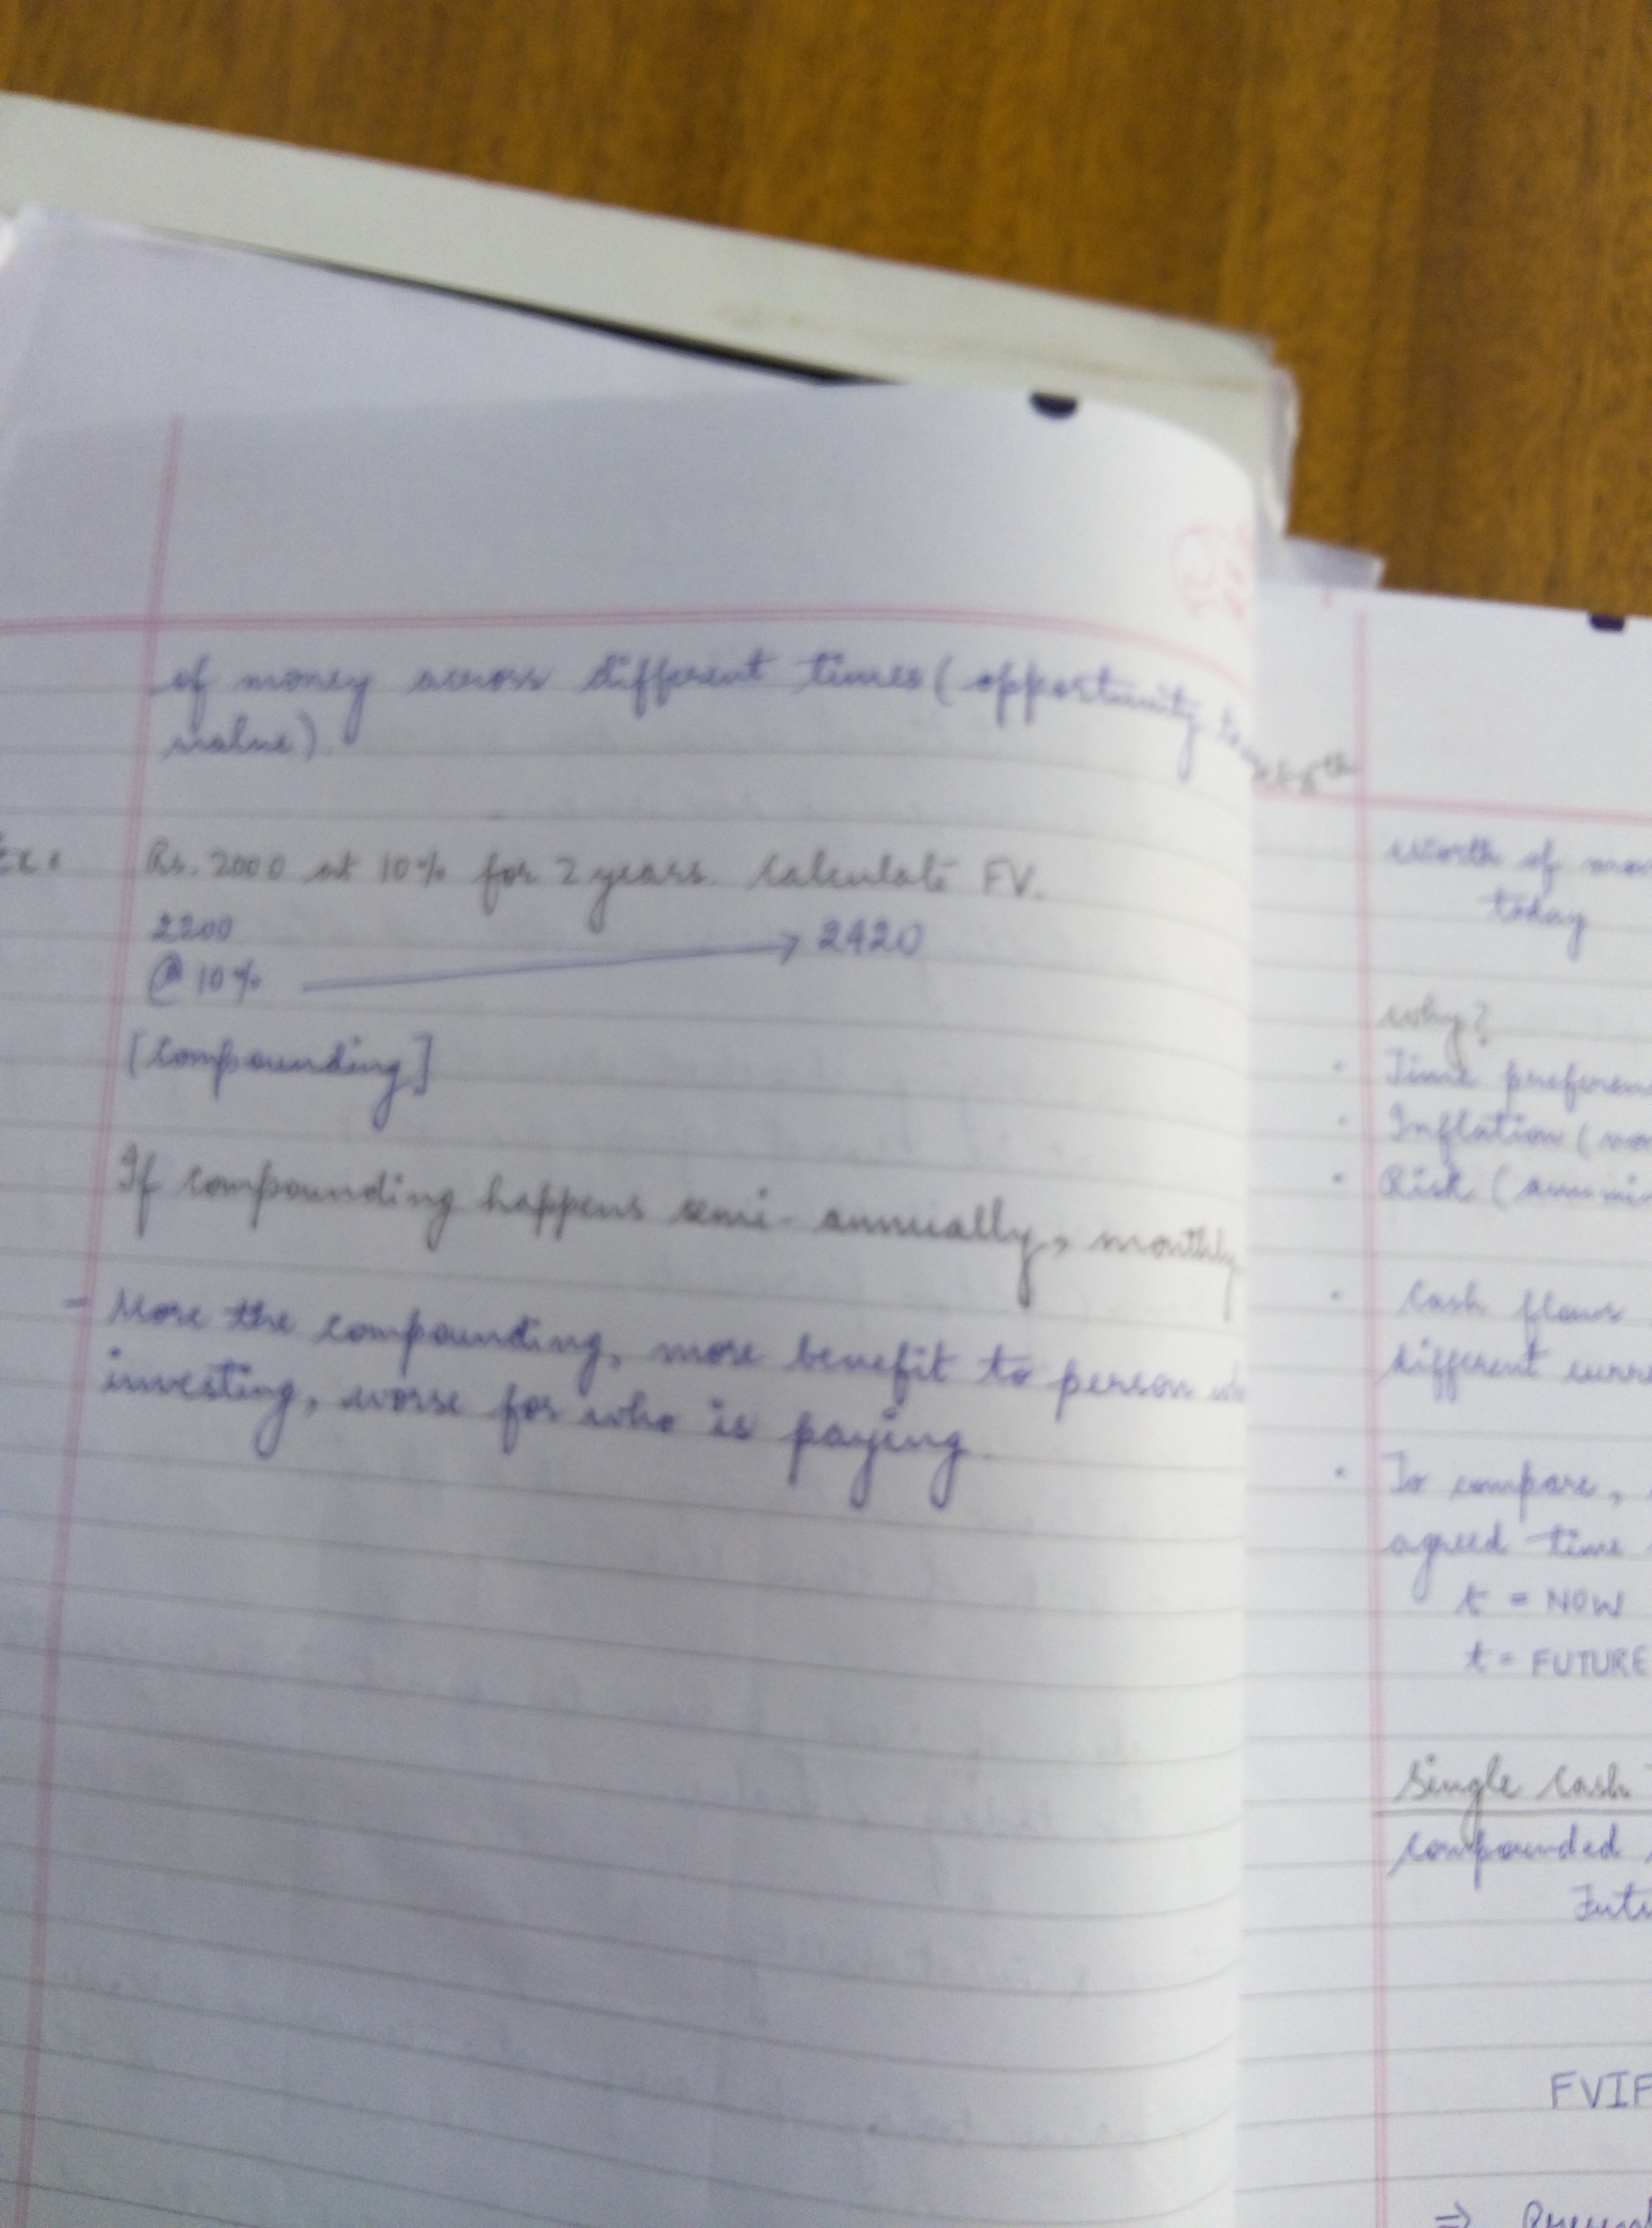 of money across different times (opportunity to
value)
Ex:
Rs. 2000 at 10% for 2 years. Calculate FV.
2200
@ 10% → 2420
[Compounding]
If compounding happens semi-annually, monthly
- More the compounding, more benefit to person
investing, worse for who is paying.
worth of
today
why?
• Time
• Inflation (
• Risk (
• Cash flows
different
• To compare,
agreed time
t = NOW
t = FUTURE
Single Cash
Compounded
FVIF
⇒